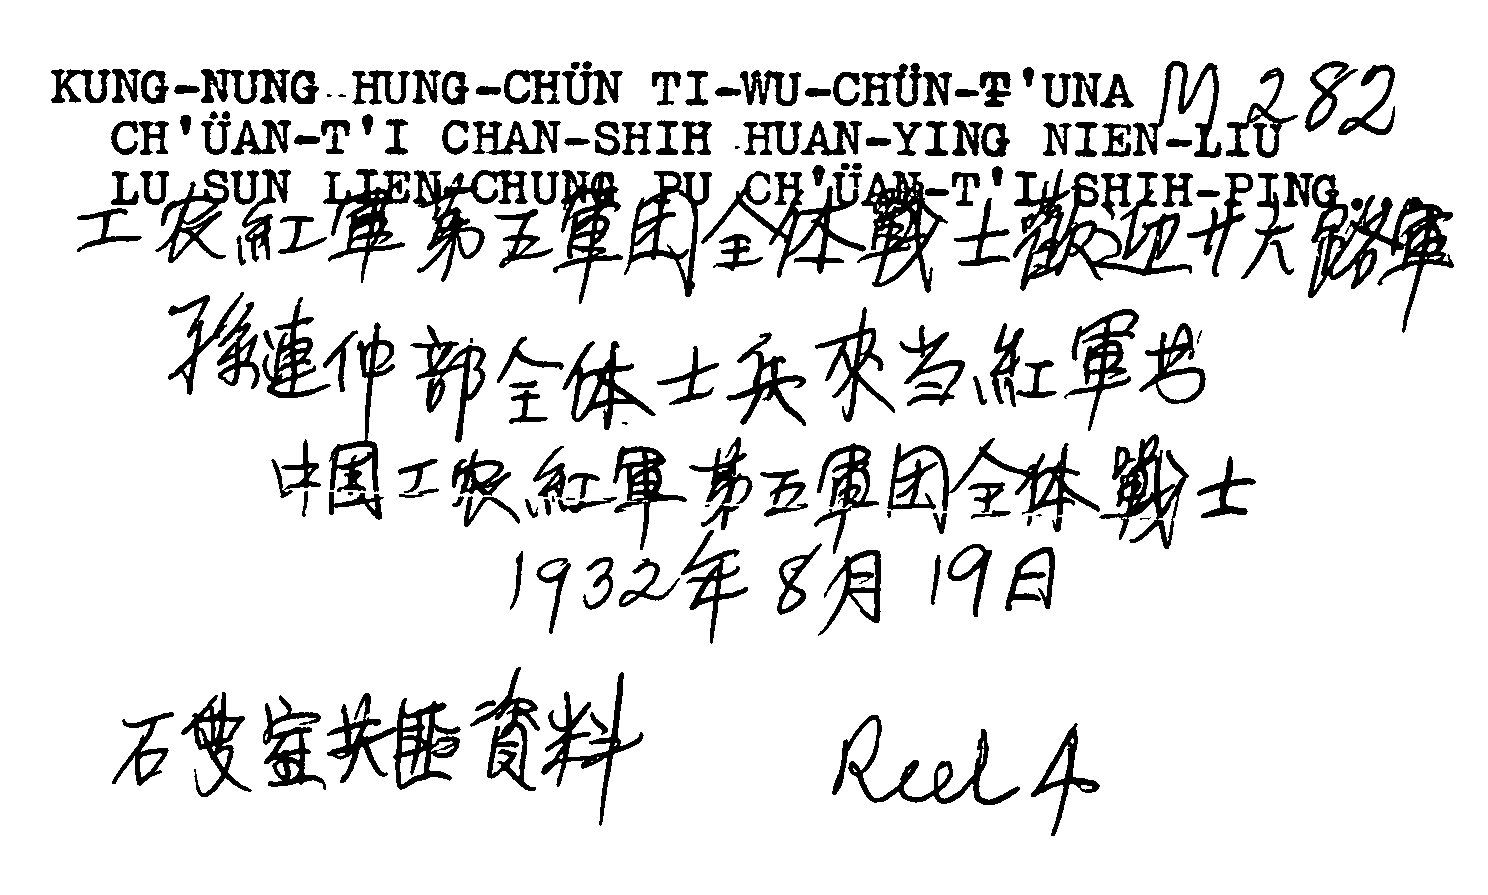 KUNG-NUNG HUNG-CHÜN TI-WU-CHÜN-T'UNA M 282
CH'ÜAN-T'I CHAN-SHIH HUAN-YING NIEN-LIU
LU SUN LIEN-CHUNG PU CH'ÜAN-T'I SHIH-PING...
工农紅軍第五軍团全体戰士歡迎廿六路軍
孫連仲部全体士兵來当紅軍书
中国工农紅軍第五軍团全体戰士
1932年8月19日
石叟室共匪資料 Reel 4